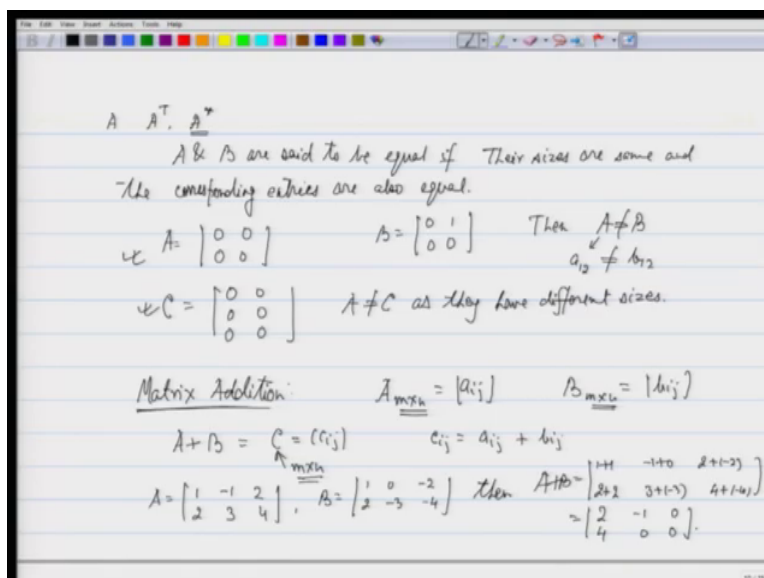 File Edit View Insert Actions Tools Help
A Aᵀ. A*
A & B are said to be equal if Their sizes are same and
the corresponding entries are also equal.
A = [0 0; 0 0] B = [0 1; 0 0] Then A ≠ B
a₁₂ ≠ b₁₂
C = [0 0; 0 0; 0 0] A ≠ C as they have different sizes.
Matrix Addition: A_{m×n} = [aij] B_{m×n} = [bij]
A + B = C = (cij) cij = aij + bij
m×n
A = [1 -1 2; 2 3 4], B = [1 0 -2; 2 -3 -4] then A+B = [1+1 -1+0 2+(-2); 2+2 3+(-3) 4+(-4)]
= [2 -1 0; 4 0 0].